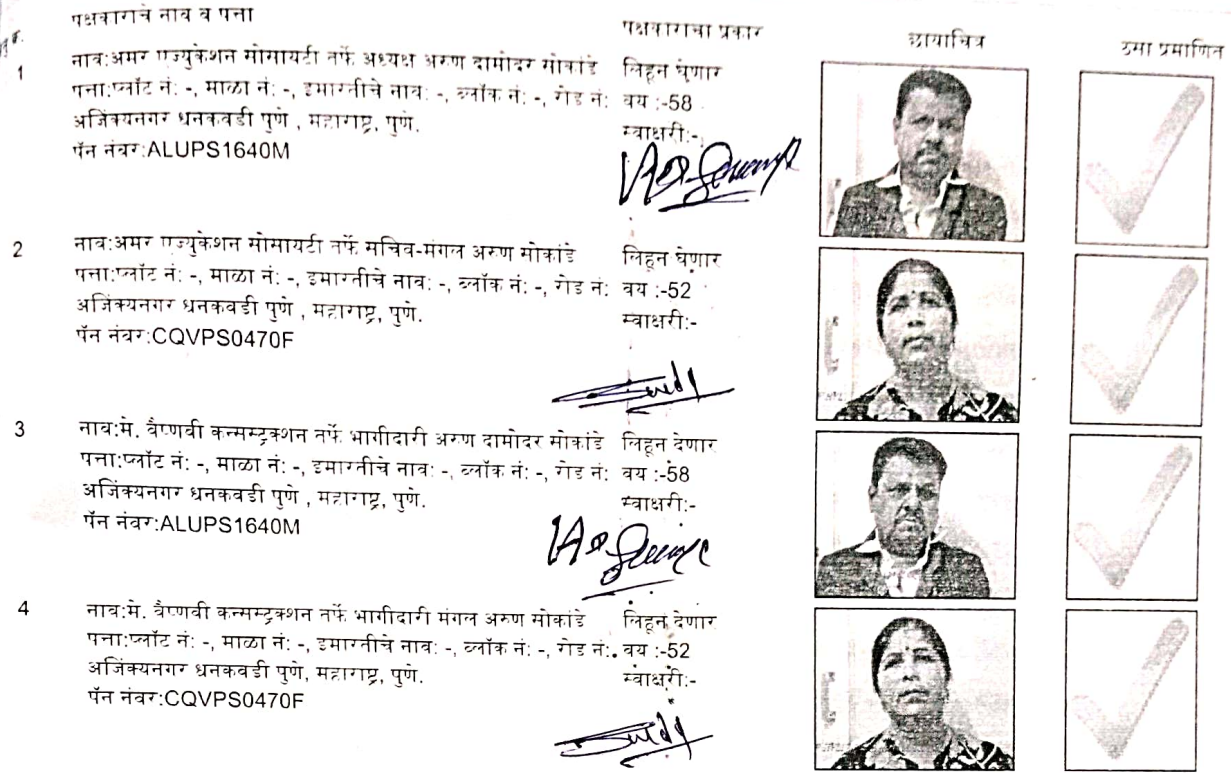 पक्षकाराचे नाव व पत्ता
पक्षकाराचा प्रकार
छायाचित्र
ठसा प्रमाणित
1
नाव:अमर एज्युकेशन सोसायटी तर्फे अध्यक्ष अरुण दामोदर सोकांडे
पत्ता:प्लॉट नं: -, माळा नं: -, इमारतीचे नाव: -, ब्लॉक नं: -, रोड नं:
अजिंक्यनगर धनकवडी पुणे , महाराष्ट्र, पुणे.
पॅन नंबर:ALUPS1640M
लिहून घेणार
वय :-58
स्वाक्षरी:-
2
नाव:अमर एज्युकेशन सोसायटी तर्फे सचिव-मंगल अरुण सोकांडे
पत्ता:प्लॉट नं: -, माळा नं: -, इमारतीचे नाव: -, ब्लॉक नं: -, रोड नं:
अजिंक्यनगर धनकवडी पुणे , महाराष्ट्र, पुणे.
पॅन नंबर:CQVPS0470F
लिहून घेणार
वय :-52
स्वाक्षरी:-
3
नाव:मे. वैष्णवी कन्सस्ट्रक्शन तर्फे भागीदारी अरुण दामोदर सोकांडे
पत्ता:प्लॉट नं: -, माळा नं: -, इमारतीचे नाव: -, ब्लॉक नं: -, रोड नं:
अजिंक्यनगर धनकवडी पुणे , महाराष्ट्र, पुणे.
पॅन नंबर:ALUPS1640M
लिहून देणार
वय :-58
स्वाक्षरी:-
4
नाव:मे. वैष्णवी कन्सस्ट्रक्शन तर्फे भागीदारी मंगल अरुण सोकांडे
पत्ता:प्लॉट नं: -, माळा नं: -, इमारतीचे नाव: -, ब्लॉक नं: -, रोड नं:
अजिंक्यनगर धनकवडी पुणे, महाराष्ट्र, पुणे.
पॅन नंबर:CQVPS0470F
लिहून देणार
वय :-52
स्वाक्षरी:-